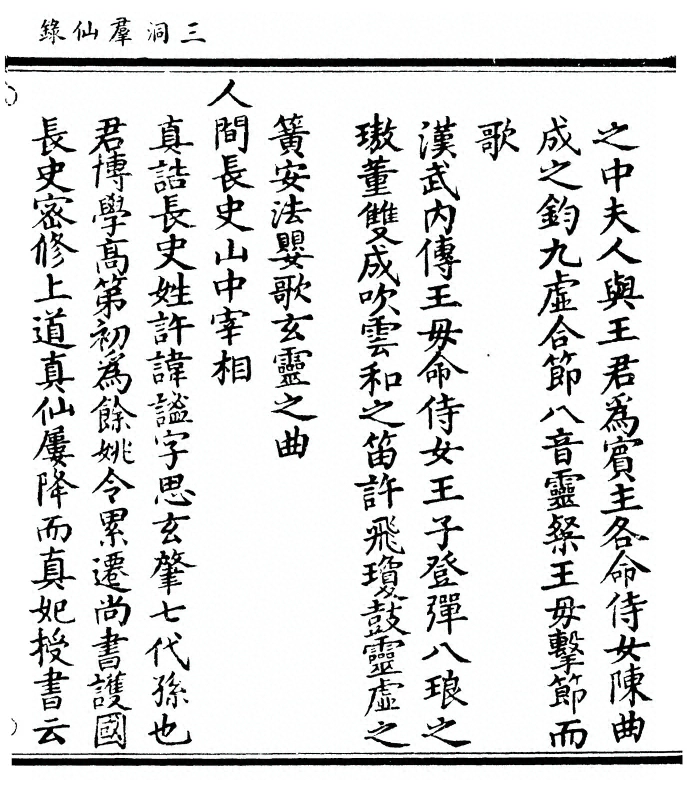 三洞羣仙錄
之中夫人與王君爲賓主各命侍女陳曲
成之鈞九虛合節八音靈粲王母擊節而
歌
漢武内傳王母命侍女王子登彈八琅之
璈董雙成吹雲和之笛許飛瓊鼓靈虛之
簧安法嬰歌玄靈之曲
人間長史山中宰相
真誥長史姓許諱謐字思玄肇七代孫也
君博學高第初爲餘姚令累遷尚書護國
長史密修上道真仙屢降而真妃授書云